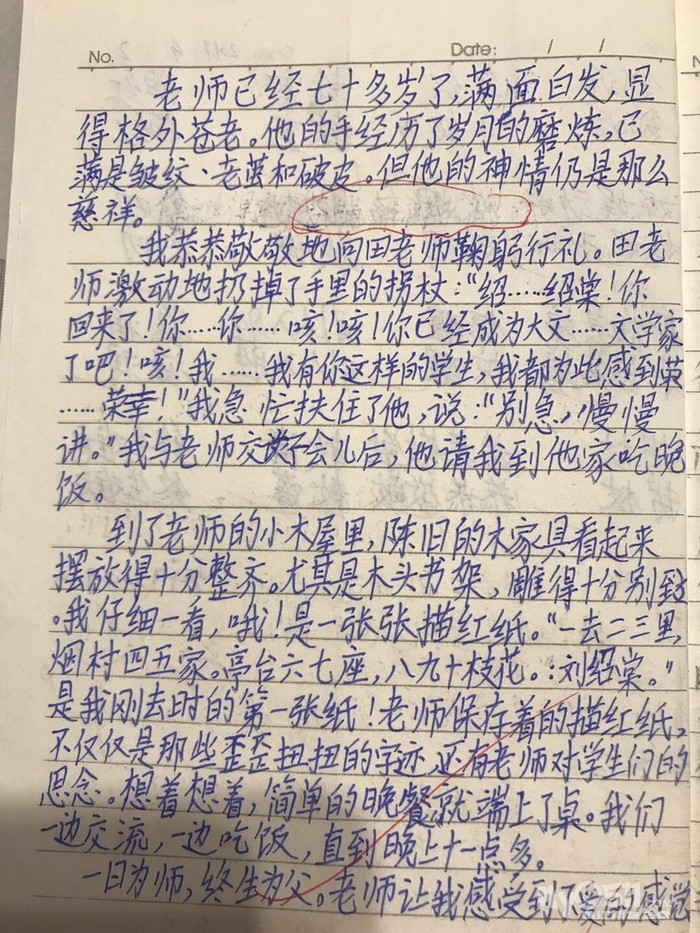 No.
Date: / /
老师已经七十多岁了,满面白发,显
得格外苍老。他的手经历了岁月的磨炼,已
满是皱纹、老茧和破皮。但他的神情仍是那么
慈祥。
我恭恭敬敬地向田老师鞠躬行礼。田老
师激动地扔掉了手里的拐杖:“绍……绍棠!你
回来了!你……你……咳!咳!你已经成为大文……文学家
了吧!咳!我……我有你这样的学生,我都为此感到荣
……荣幸!”我急忙扶住了他,说:“别急,慢慢
讲。”我与老师交谈了会儿后,他请我到他家吃晚
饭。
到了老师的小木屋里,陈旧的木家具看起来
摆放得十分整齐。尤其是木头书架,雕得十分别致
。我仔细一看,哦!是一张张描红纸。“一去二三里,
烟村四五家。亭台六七座,八九十枝花。:刘绍棠。”
是我刚去时的第一张纸!老师保存着的描红纸,
不仅仅是那些歪歪扭扭的字迹,还有老师对学生们的
思念。想着想着,简单的晚餐就端上了桌。我们
一边交流,一边吃饭,直到晚上十一点多。
一日为师,终生为父。老师让我感受到了爱的感觉